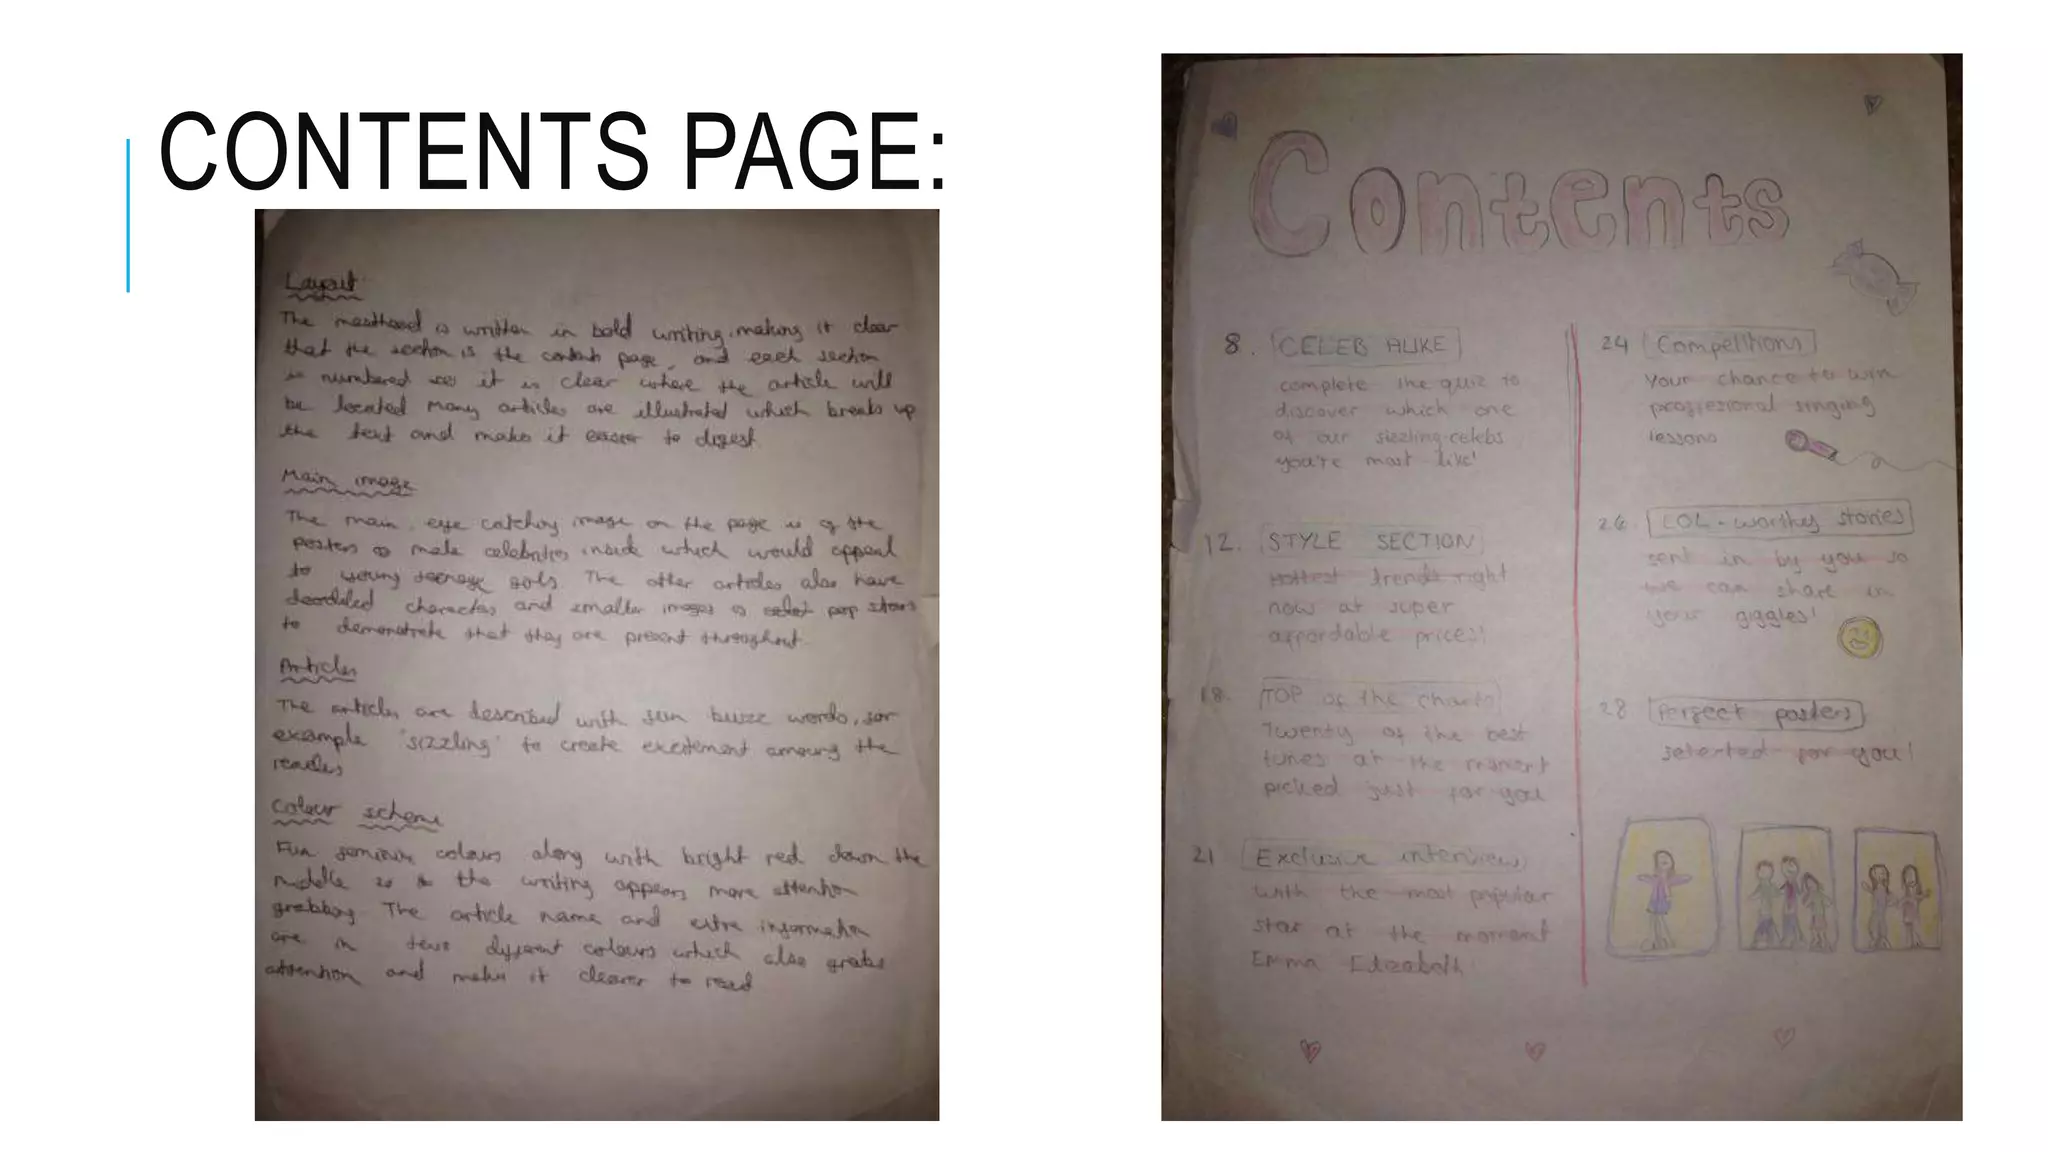 CONTENTS PAGE:
Layout
The masthead is written in bold writing, making it clear
that the section is the contents page, and each section
is numbered so it is clear where the article will
be located Many articles are illustrated which breaks up
the text and makes it easier to digest.
Main image
The main, eye catching image on the page is of the
posters of male celebrities inside which would appeal
to young teenage girls. The other articles also have
doodled characters and smaller images of pop stars
to demonstrate that they are present throughout.
Articles
The articles are described with fun buzz words, for
example 'sizzling' to create excitement among the
readers
Colour scheme
Fun feminin colours along with bright red down the
middle so the writing appears more attention
grabbing. The article name and extra information
are in two different colours which also grabs
attention and makes it clearer to read
Contents
8. CELEB ALIKE
complete the quiz to
discover which one
of our sizzling celebs
you're most like!
12. STYLE SECTION
Hottest trends right
now at super
affordable prices!
18. TOP of the charts
Twenty of the best
tunes at the moment
picked just for you
21 Exclusive interview
with the most popular
star at the moment
Emma Elizabeth
24 Competitions
Your chance to win
professional singing
lessons
26. LOL-worthy stories
sent in by you so
we can share in
your giggles!
28 Perfect posters
selected for you!